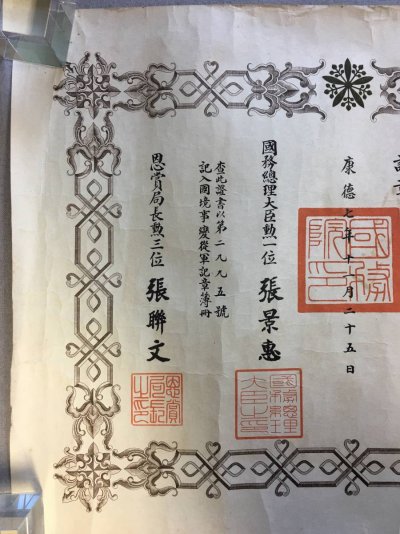 康德七年十一月二十五日
國務院印
國務總理大臣勲一位 張景惠
查此證書以第二九九五號
記入國境事變從軍記章簿冊
恩賞局長勲三位 張聯文
恩賞局長之印